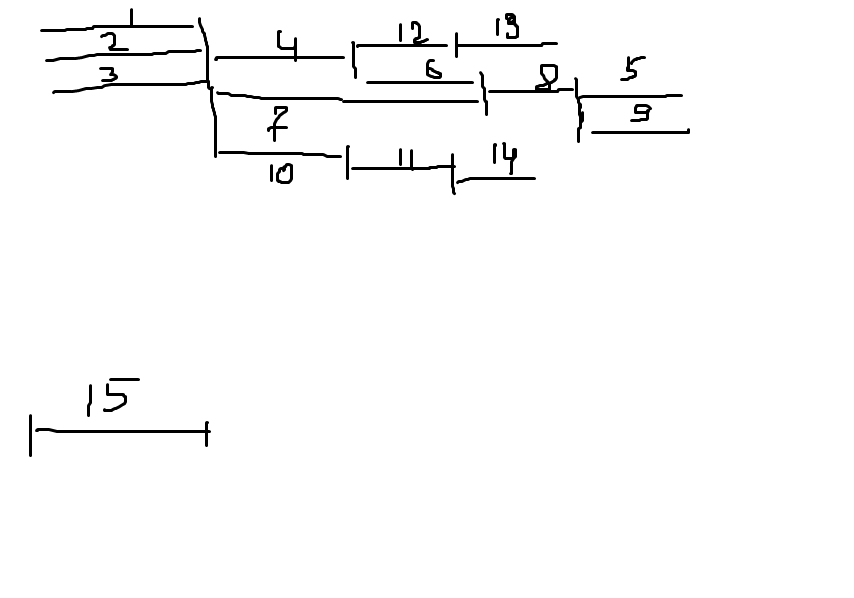 1
2
3
4
12
13
6
8
5
9
7
10
11
14
15